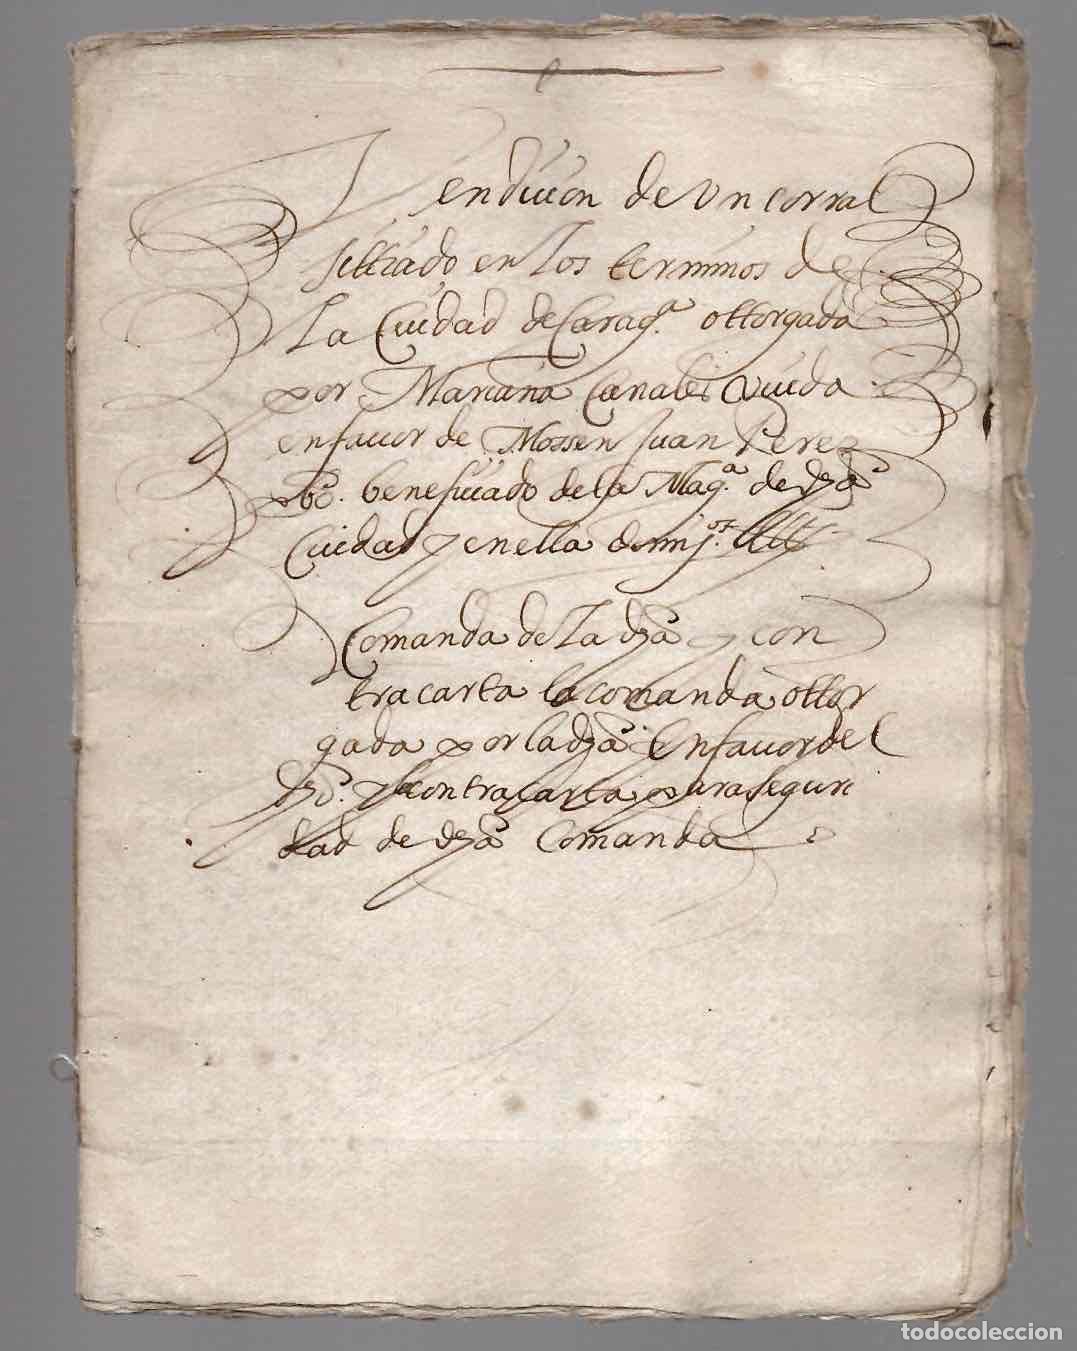 Vendicion de Un corral
sittiado en Los terminos de
La Ciudad de Carag.ª ottorgada
por Mariana Canales Viuda
en favor de Mossen Juan Perez
pbº. beneficiado de la Mag.ª de dhª
Ciudad y en ella domij.os
Comanda de La dhª y con
tracarta la comanda ottor
gada por la dhª En favor del
dhº. y la contracarta para seguri
dad de dhª Comanda
todocoleccion